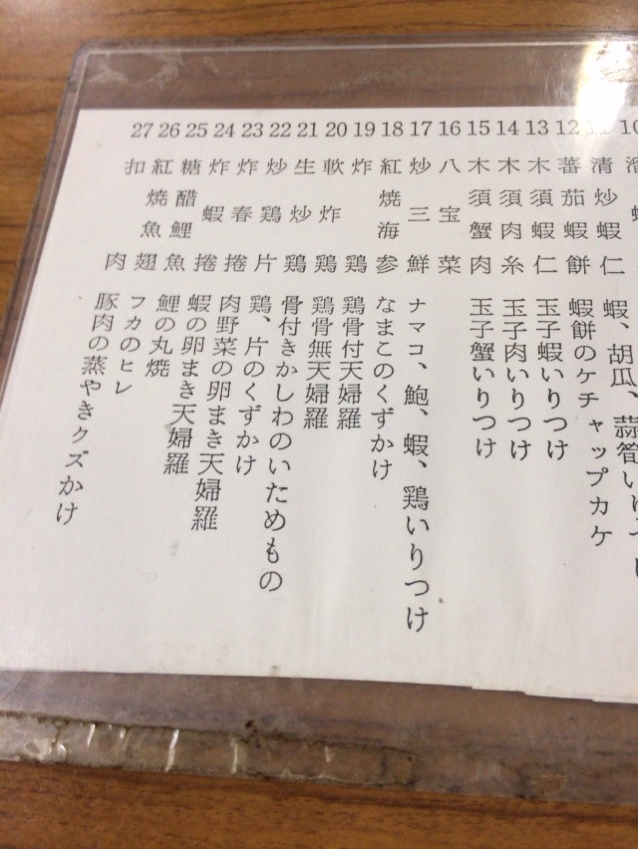 10
11 清炒蝦仁 蝦、胡瓜、蒜管いり
12 蕃茄蝦餅 蝦餅のケチャップカケ
13 木須蝦仁 玉子蝦いりつけ
14 木須肉糸 玉子肉いりつけ
15 木須蟹肉 玉子蟹いりつけ
16 八宝菜
17 炒三鮮 ナマコ、鮑、蝦、鶏いりつけ
18 紅焼海参 なまこのくずかけ
19 炸鶏 鶏骨付天婦羅
20 軟炸鶏 鶏骨無天婦羅
21 生炒鶏 骨付きかしわのいためもの
22 炒鶏片 鶏、片のくずかけ
23 炸春捲 肉野菜の卵まき天婦羅
24 炸蝦捲 蝦の卵まき天婦羅
25 糖醋鯉魚 鯉の丸焼
26 紅焼魚翅 フカのヒレ
27 扣肉 豚肉の蒸やきクズかけ